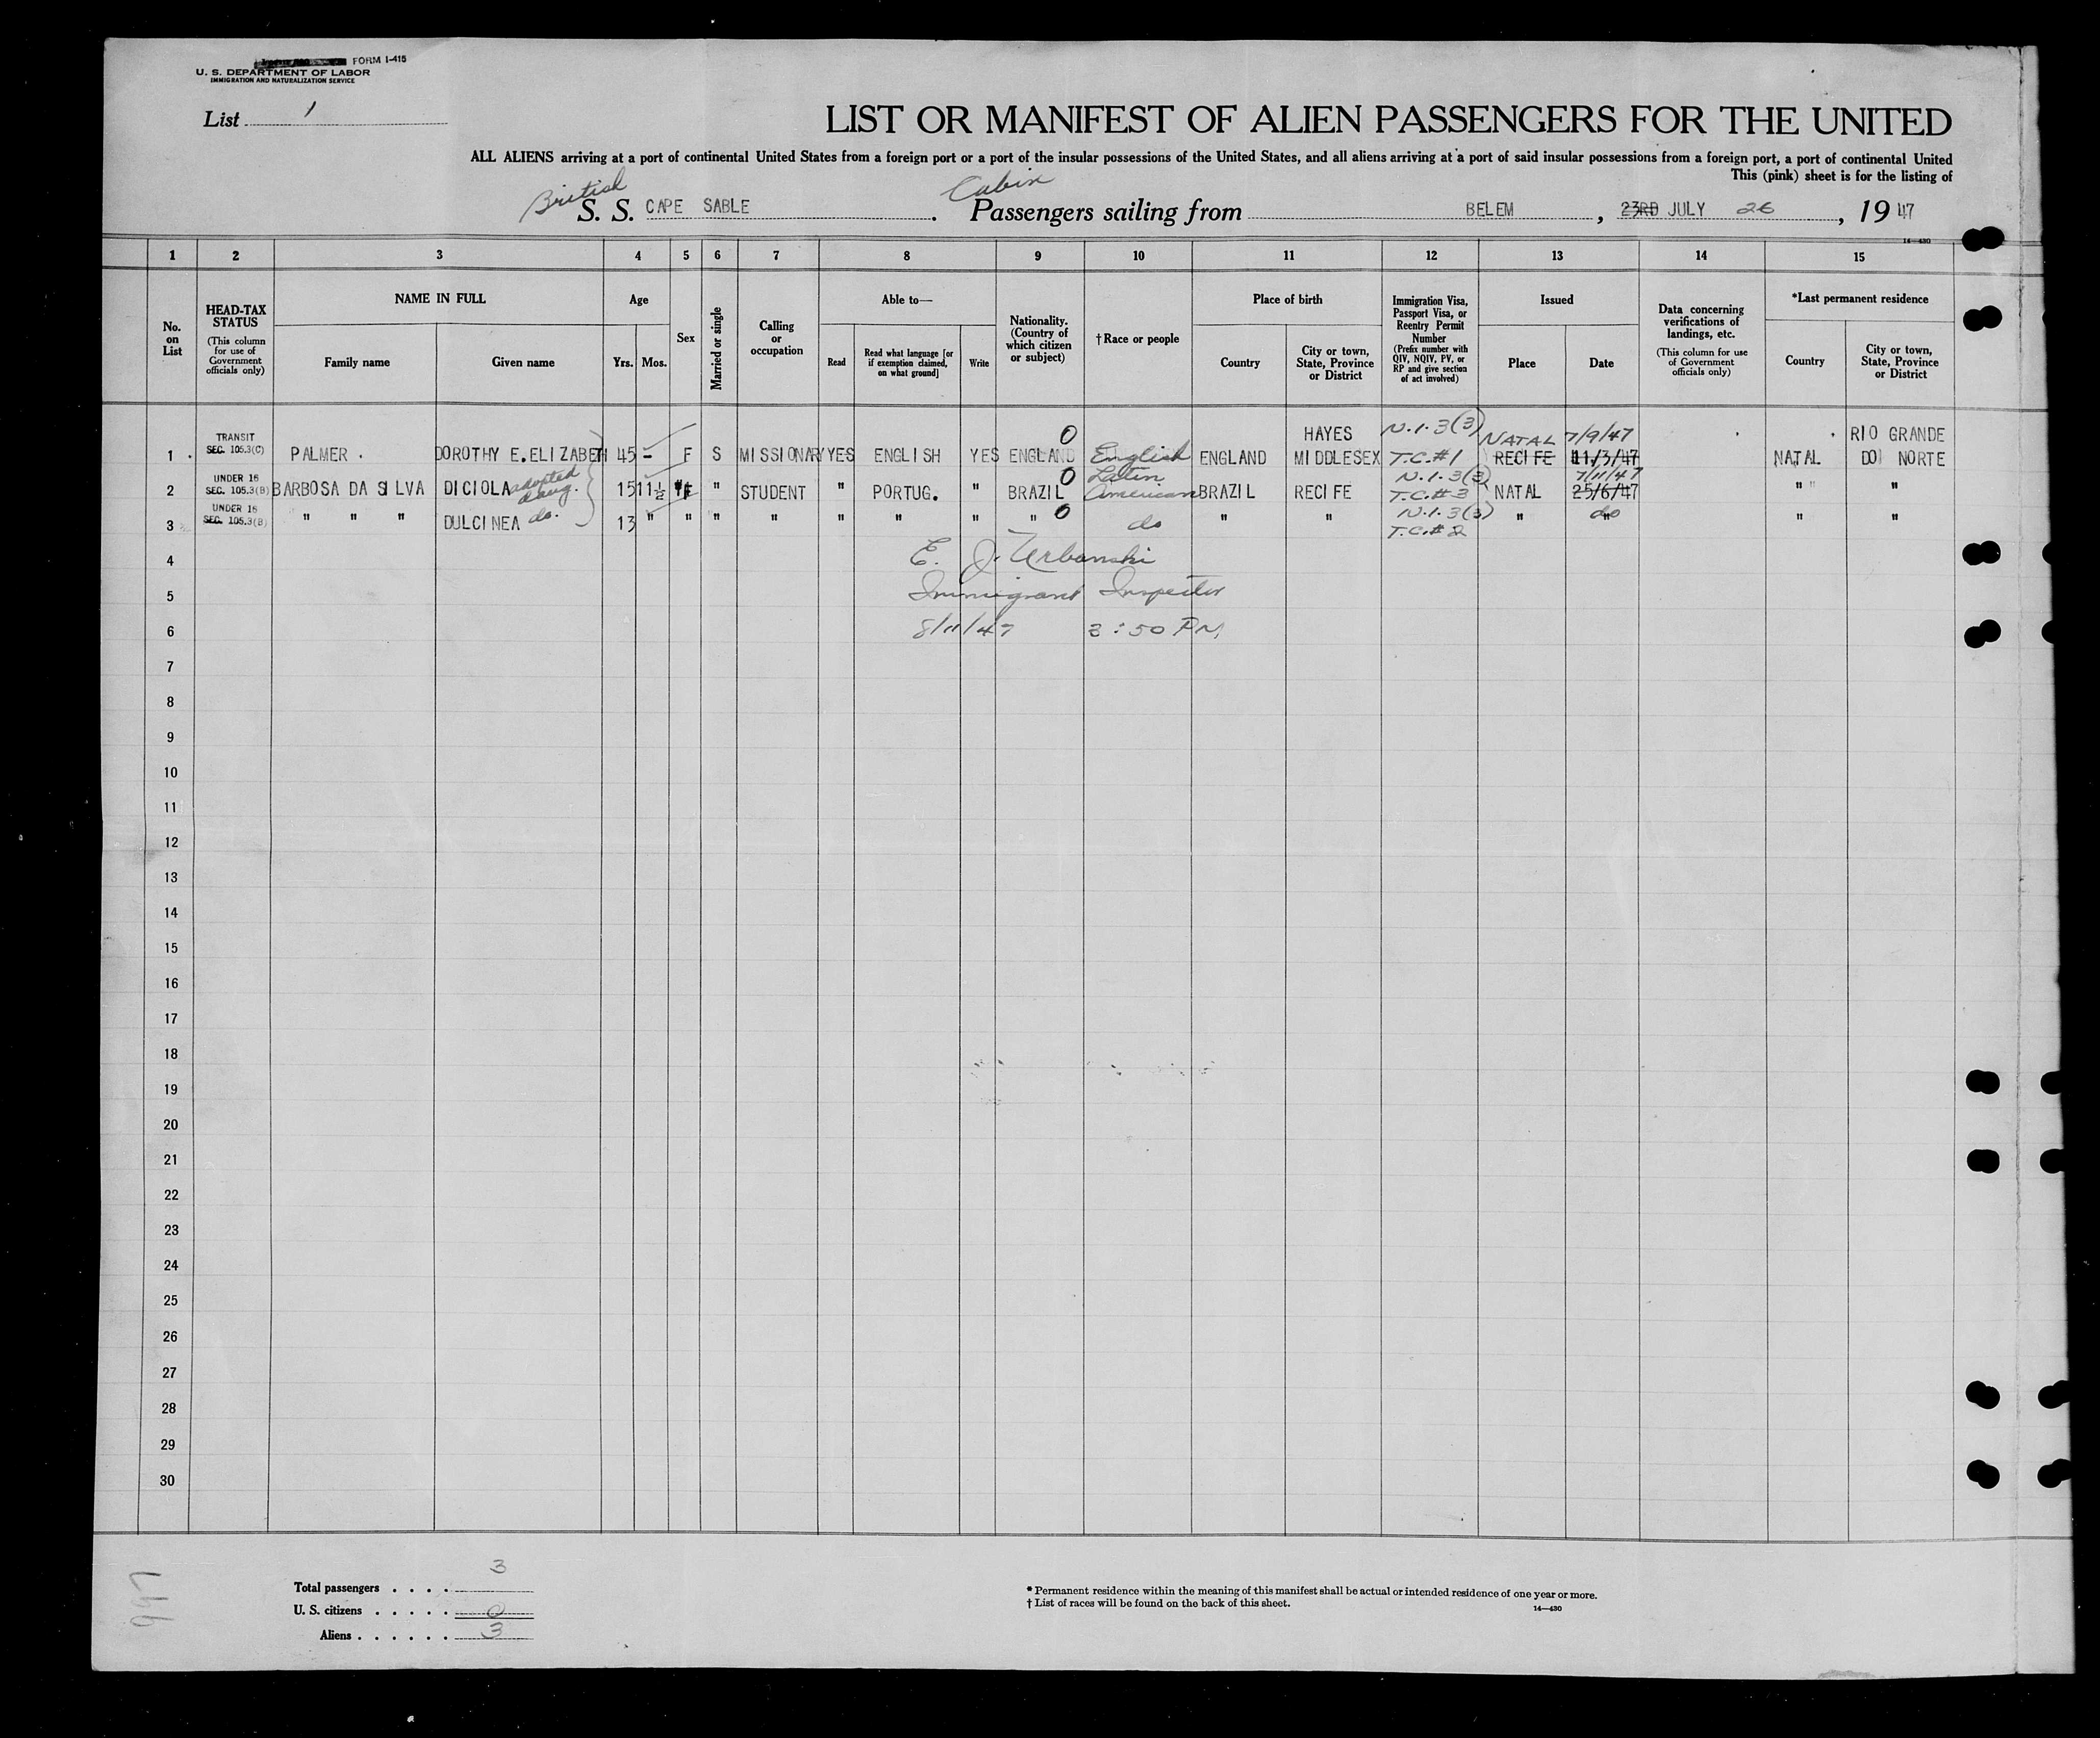 FORM I-415
U. S. DEPARTMENT OF LABOR
IMMIGRATION AND NATURALIZATION SERVICE
List 1
LIST OR MANIFEST OF ALIEN PASSENGERS FOR THE UNITED
ALL ALIENS arriving at a port of continental United States from a foreign port or a port of the insular possessions of the United States, and all aliens arriving at a port of said insular possessions from a foreign port, a port of continental United
This (pink) sheet is for the listing of
British Cabin
S. S. CAPE SABLE. Passengers sailing from BELEM, 23RD JULY 26, 1947
14—430
1 2 3 4 5 6 7 8 9 10 11 12 13 14 15
No. on List
HEAD-TAX STATUS (This column for use of Government officials only)
NAME IN FULL
Family name Given name
Age
Yrs. Mos.
Sex
Married or single
Calling or occupation
Able to—
Read Read what language [or if exemption claimed, on what ground] Write
Nationality. (Country of which citizen or subject)
†Race or people
Place of birth
Country City or town, State, Province or District
Immigration Visa, Passport Visa, or Reentry Permit Number (Prefix number with QIV, NQIV, PV, or RP and give section of act involved)
Issued
Place Date
Data concerning verifications of landings, etc. (This column for use of Government officials only)
*Last permanent residence
Country City or town, State, Province or District
TRANSIT O HAYES N.I.3(3) NATAL 7/9/47 RIO GRANDE
SEC. 105.3(C)
1 PALMER. DOROTHY E.ELIZABETH 45 - F S MISSIONARY YES ENGLISH YES ENGLAND English ENGLAND MIDDLESEX T.C.#1 RECIFE 11/3/47 NATAL DO NORTE
UNDER 16 adopted O Latin N.I.3(3) 7/11/47
SEC. 105.3(B)
2 BARBOSA DA SILVA DICIOLA daug. 15 11½ F " STUDENT " PORTUG. " BRAZIL American BRAZIL RECIFE T.C.#3 NATAL 25/6/47 " " "
UNDER 16 O N.I.3(3)
SEC. 105.3(B)
3 " " " DULCINEA do. 13 " " " " " " " " do " " T.C.#2 " do " "
4 E. J. Urbanski
5 Immigrant Inspector
6 8/11/47 3:50 PM
7
8
9
10
11
12
13
14
15
16
17
18
19
20
21
22
23
24
25
26
27
28
29
30
Total passengers . . . . 3
U. S. citizens . . . . . 0
Aliens . . . . . . 3
* Permanent residence within the meaning of this manifest shall be actual or intended residence of one year or more.
† List of races will be found on the back of this sheet.
14—430